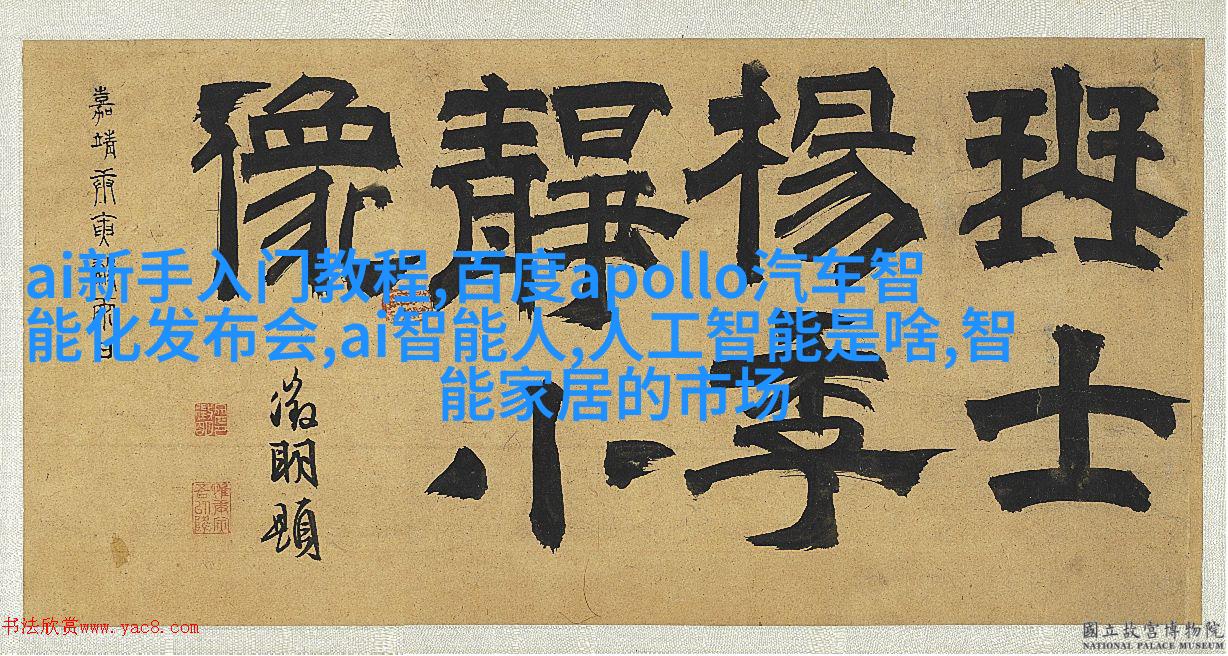 士
楊季
靜小
像
嘉靖庚寅
徵明題
ai新手入门教程,百度apollo汽车智
能化发布会,ai智能人,人工智能是啥,智
能家居的市场
书法欣赏www.yac8.com
國立故宮博物院
NATIONAL PALACE MUSEUM